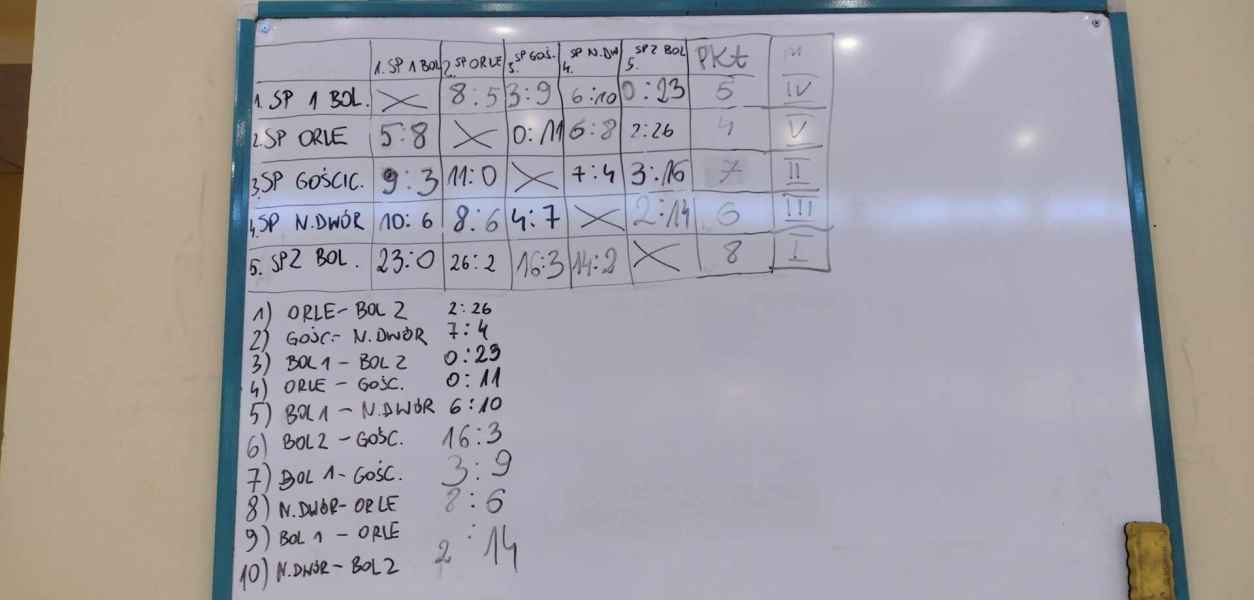 1. SP 1 BOL 2. SP ORLE 3. SP GOŚ. 4. SP N.DW 5. SP 2 BOL PKt M
1. SP 1 BOL. X 8:5 3:9 6:10 0:23 5 IV
2. SP ORLE 5:8 X 0:11 6:8 2:26 4 V
3. SP GOŚCIC. 9:3 11:0 X 7:4 3:16 7 II
4. SP N.DWÓR 10:6 8:6 4:7 X 2:14 6 III
5. SP2 BOL. 23:0 26:2 16:3 14:2 X 8 I
1) ORLE - BOL 2 2:26
2) GOŚC. - N.DWÓR 7:4
3) BOL 1 - BOL 2 0:23
4) ORLE - GOŚC. 0:11
5) BOL 1 - N.DWÓR 6:10
6) BOL 2 - GOŚC. 16:3
7) BOL 1 - GOŚC. 3:9
8) N.DWÓR - ORLE 8:6
9) BOL 1 - ORLE
10) N.DWÓR - BOL 2 2:14